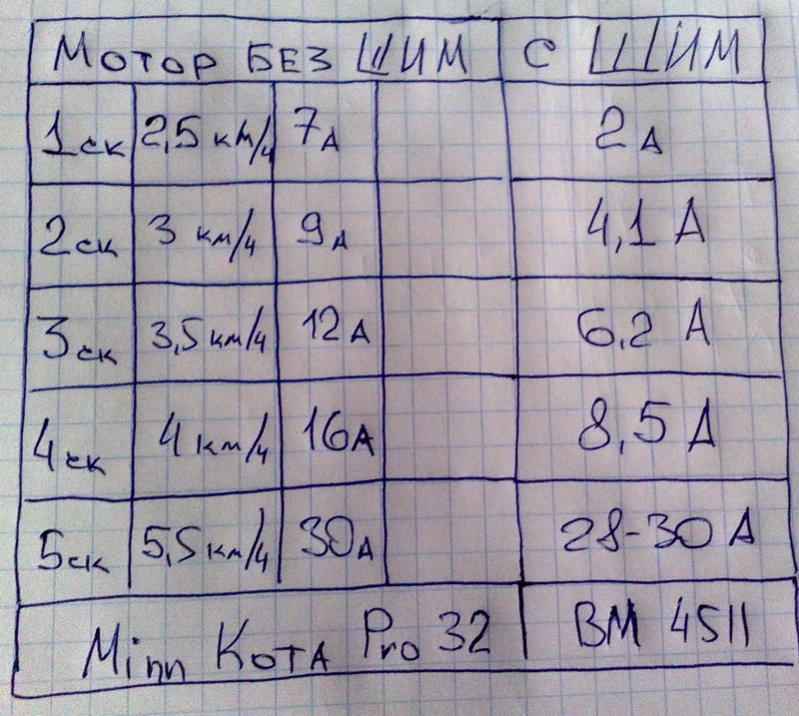 Мотор БЕЗ ШИМ с ШИМ
1ск 2,5 км/ч 7А 2А
2ск 3 км/ч 9А 4,1 А
3ск 3,5 км/ч 12А 6,2 А
4ск 4 км/ч 16А 8,5 А
5ск 5,5 км/ч 30А 28-30 А
Minn Кота Pro 32 ВМ 4511